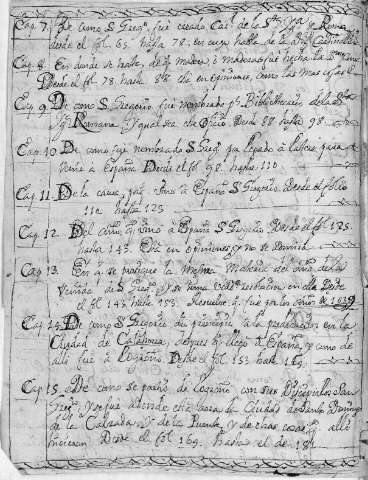 Cap. 7. De como S. Greg.º fue creado Car. de la S.ta Yg.a Romana
desde el fol. 65. hasta 78. en cuyo habla de la Dig.
Cap. 8. En donde se trata, de q.
Desde el fol. 78. hasta 88. en opiniones, como las mas cosas
Cap. 9. De como S. Gregorio fue nombrado p.r Bibliothecario de la S.ta
Yg. Romana. Desde 88. hasta 98.
Cap. 10. De como fue nombrado S. Greg. Legado à Latere para
venir à España Desde el fol. 98. hasta 110.
Cap. 11. De la causa, por que vino à España S. Gregorio. Desde el folio
110. hasta 125.
Cap. 12. Del año en que vino à España S. Gregorio. Desde el fol. 125.
hasta 143. Está en opiniones, y no se
Cap. 13. En q. se prosigue la misma Materia del año de la
venida de S. Greg.º y se toma resolucion en ella Desde
el fol. 143. hasta 153. Resuelve q. fue por los años de 1039
Cap. 14. De como S. Gregorio dio principio à la predicacion en la
Ciudad de Calahorra, despues q. llego à España, y como de
alli fue à Logroño. Desde el fol. 153. hasta 169.
Cap. 15. De como se partio de Logroño con sus Discipulos San
Greg.º y se fue adonde està aora la Ciudad de Santo Domingo
de la Calzada, y de la Puente, y de otras cosas q. alli
hicieron. Desde el fol. 169. hasta el de 181